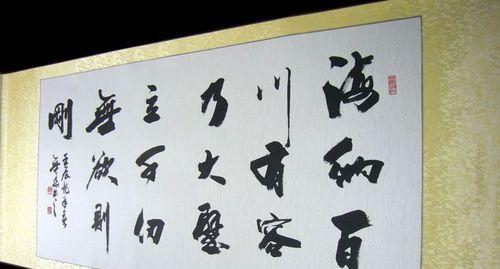 海納百
川有容
乃大壁
立千仞
無欲則
剛
壬辰龍年春